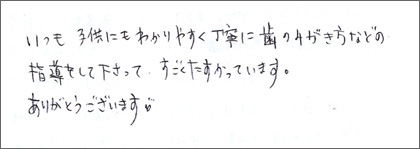 いつも 子供にもわかりやすく丁寧に歯のみがき方などの
指導をして下さって、すごくたすかっています。
ありがとうございます。